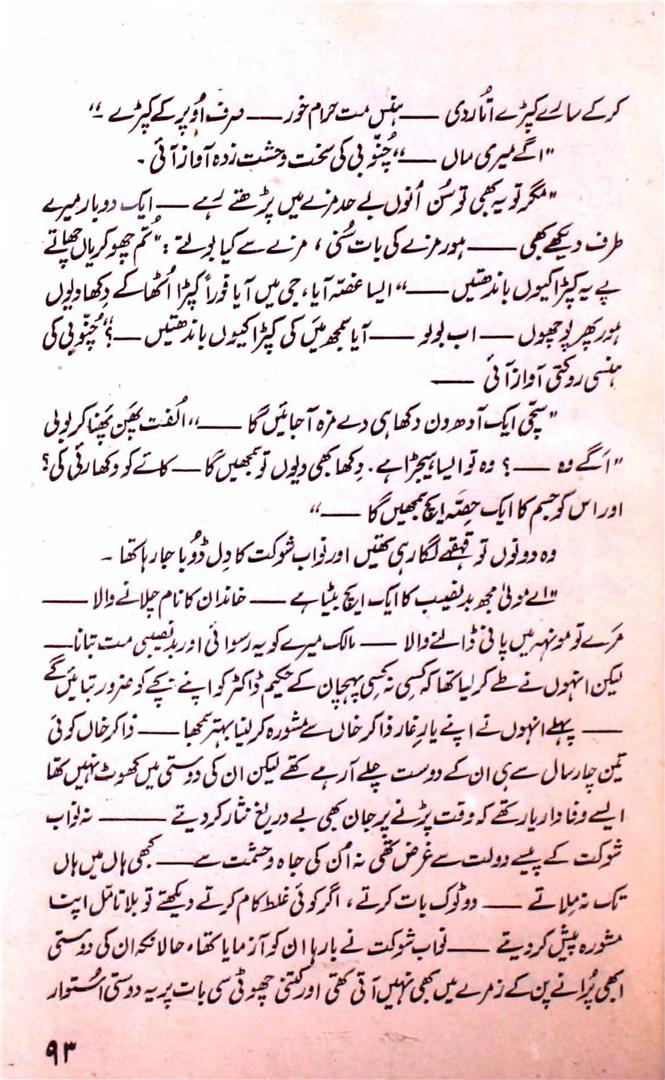 کر کے سارے کپڑے اتار دی —— ہنس مت حرام خور —— صرف اُوپر کے کپڑے ۔"
"اگے میری ماں ——" چُنّوبی کی سخت وحشت زدہ آواز آئی ۔
"مگر تو یہ بھی تو سُن اُنوں بے حد مزے میں پڑھتے رہے —— ایک دو بار میرے
طرف دیکھے بھی —— ہور مزے کی بات سُنی، مزے سے کیا بولتے: "تم چھوکریاں چھاتے
پے یہ کپڑا کیوں باندھتیں ——" ایسا غصّہ آیا، جی میں آیا فوراً کپڑا اُٹھا کے دِکھا دیوں
ہور پھر پوچھوں —— اب بولو —— آیا سمجھ میں کی کپڑا کیوں باندھتیں ——؟" چُنّوبی کی
ہنسی روکتی آواز آئی ——
"سچّی ایک آدھ دن دکھا ہی دے مزہ آ جائیں گا ——" اُلفت پھن پھنا کر بولی
"اَگے وہ ——؟ وہ تو ایسا ہیجڑا ہے۔ دِکھا بھی دیوں تو سمجھیں گا —— کاتے کو دکھا رئی کی؟
اور اس کو جسم کا ایک حِصّہ ایچ سمجھیں گا ——"
وہ دونوں تو قہقہے لگا رہی تھیں اور نواب شوکت کا دِل ڈُوبا جا رہا تھا ۔
"اے مولیٰ مجھ بدنصیب کا ایک ایچ بیٹا ہے —— خاندان کا نام چلانے والا ——
مَرے تو مونہہ میں پانی ڈالنے والا —— مالک میرے کو یہ رسوائی اور بدنصیبی مت بتانا ——
لیکن انہوں نے طے کر لیا تھا کہ کسی نہ کسی پہچان کے حکیم ڈاکٹر کو اپنے بچے کو ضرور بتائیں گے
—— پہلے انہوں نے اپنے یارِ غار ذاکر خاں سے مشورہ کر لینا بہتر سمجھا —— ذاکر خاں کوئی
تین چار سال سے ہی ان کے دوست چلے آ رہے تھے لیکن ان کی دوستی میں کھوٹ نہیں تھا
ایسے وفادار یار تھے کہ وقت پڑنے پر جان بھی بے دریغ نثار کر دیتے —— نہ نواب
شوکت کے پیسے دولت سے غرض تھی نہ اُن کی جاہ و حشمت سے —— کبھی ہاں میں ہاں
تک نہ مِلاتے —— دو ٹوک بات کرتے، اگر کوئی غلط کام کرتے دیکھتے تو بلا تامّل اپنا
مشورہ پیش کر دیتے —— نواب شوکت نے بارہا ان کو آزمایا تھا، حالانکہ ان کی دوستی
ابھی پُرانے پن کے زمرے میں بھی نہیں آتی تھی اور کتنی چھوٹی سی بات پر یہ دوستی اُستوار
۹۳